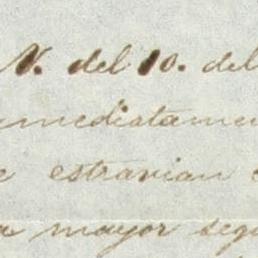 V. del 10. del
mediatame
e estravian
a mayor segu